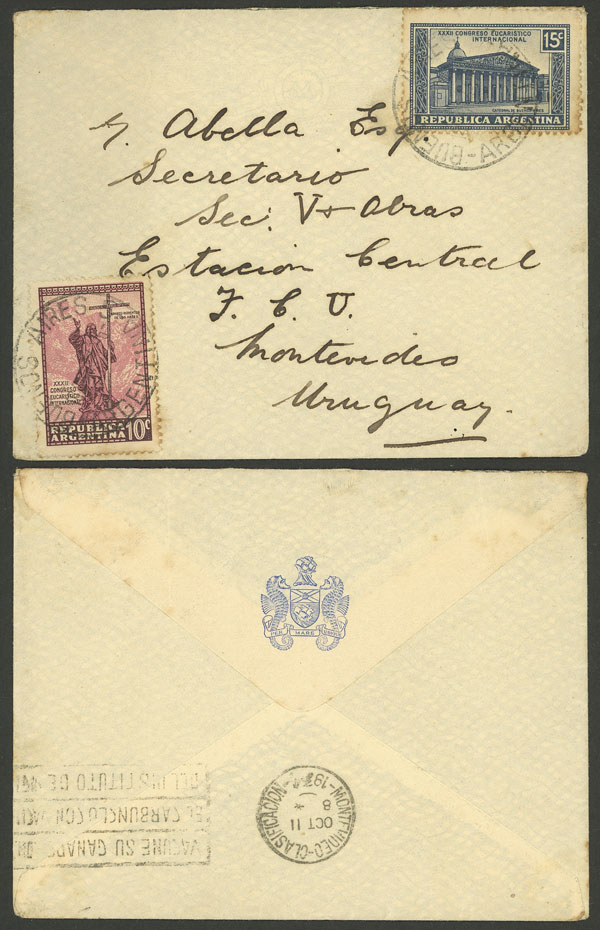 XXXII CONGRESO EUCARISTICO
INTERNACIONAL
15c
CATEDRAL DE BUENOS AIRES
REPUBLICA ARGENTINA
BUENOS AIRES
Abella Esq.
Secretario
Sec: V + Obras
Estacion Central
F. C. U.
Montevideo
Uruguay.
BUENOS AIRES
ARGENTINA
XXXII
CONGRESO
EUCARISTICO
INTERNACIONAL
REPUBLICA
ARGENTINA
10c
PER MARE
MONTEVIDEO-CLASIFICACION
OCT 11
8
VACUNE SU GANADO
EL CARBUNCLO CON
DEL INSTITUTO DE